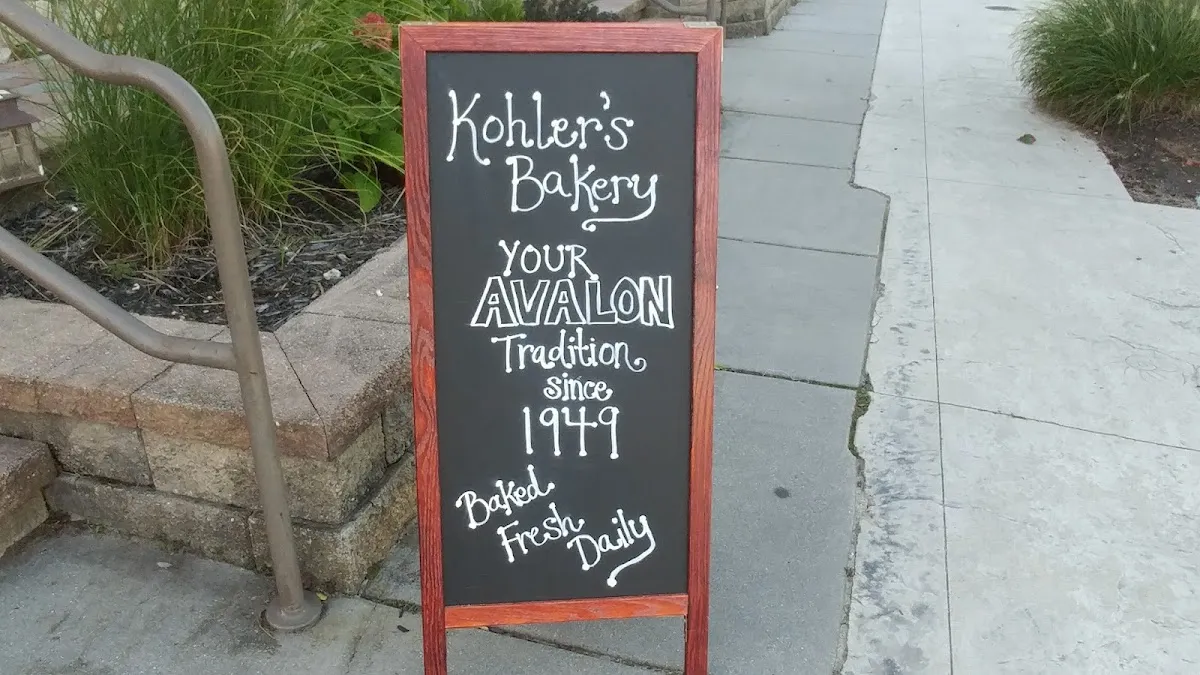 Kohler's
Bakery
YOUR
AVALON
Tradition
since
1949
Baked
Fresh
Daily